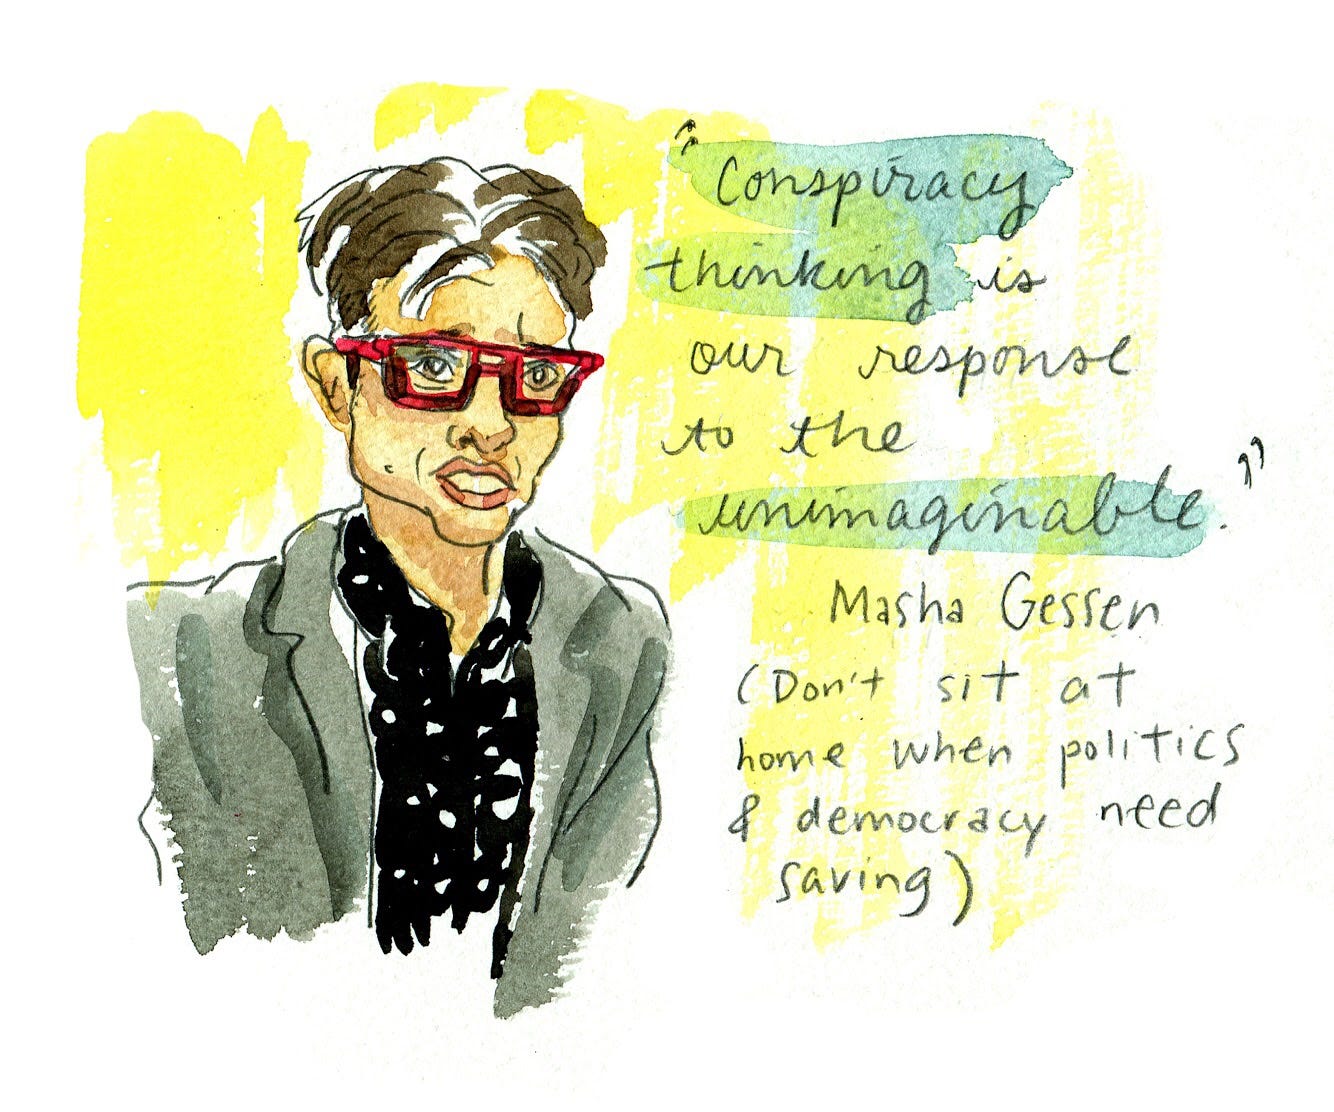 "Conspiracy
thinking is
our response
to the
unimaginable."
Masha Gessen
(Don't sit at
home when politics
& democracy need
saving)